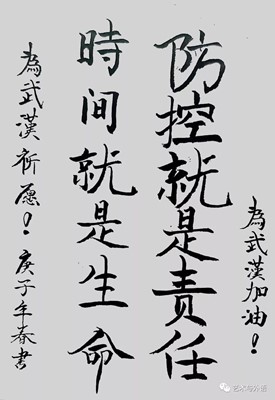 為武漢加油！
防控就是责任
時间就是生命
為武漢祈愿！庚子年春書
艺术与外链